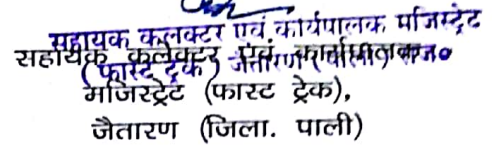 सहायक कलक्टर एवं कार्यपालक मजिस्ट्रेट
(फास्ट ट्रेक) जैतारण (पाली) राज०
सहायक कलेक्टर एवं कार्यपालक
मजिस्ट्रेट (फास्ट ट्रेक),
जैतारण (जिला. पाली)